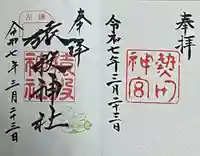 奉拝
熱田神宮
令和七年三月二十三日
奉拝
猿投神社
令和七年三月二十三日